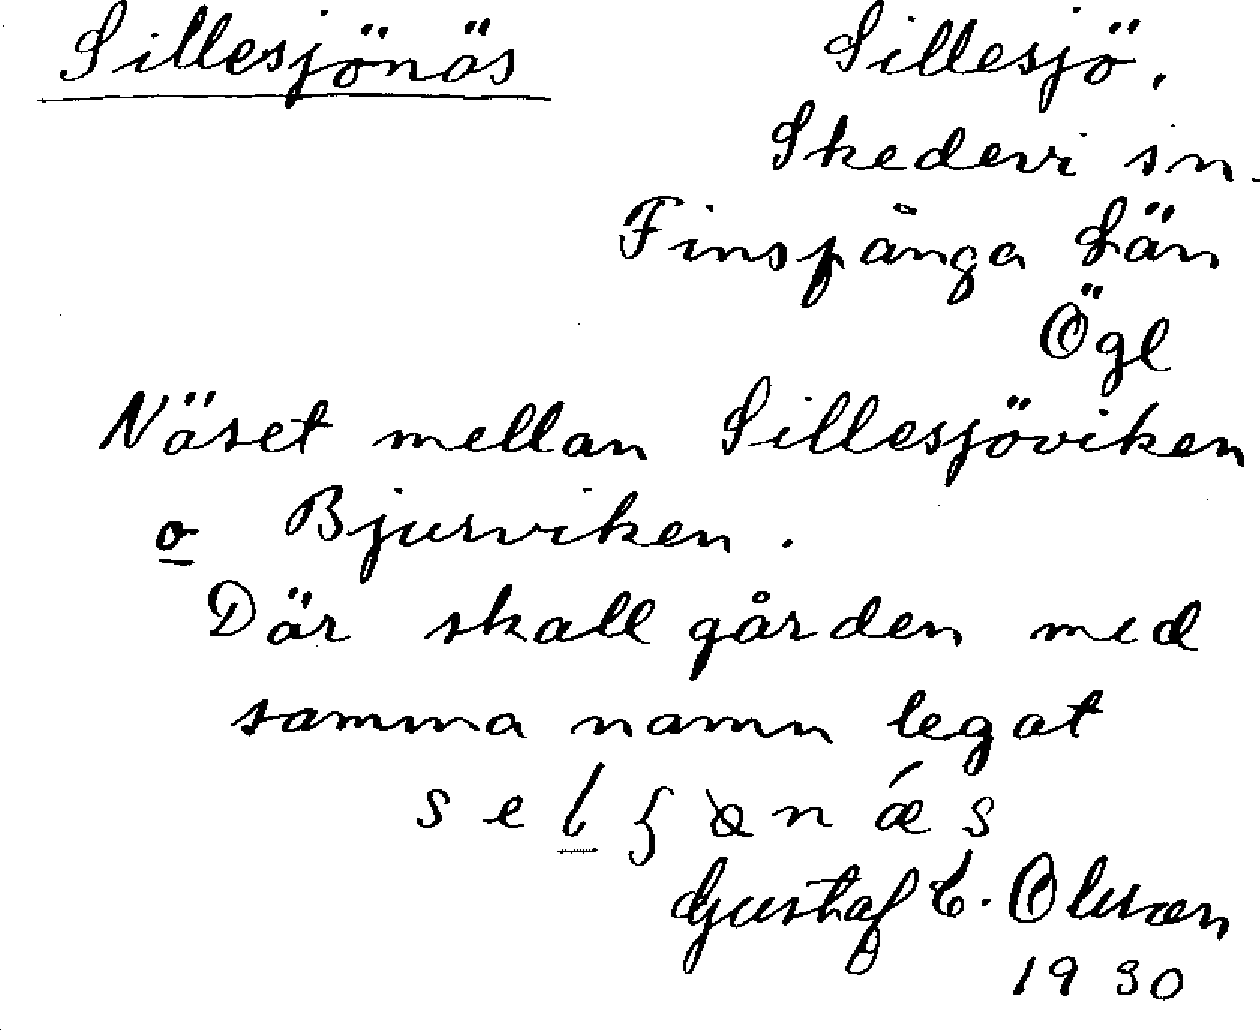 Sillesjönäs
Sillesjö,
Skedevi sn.
Finspånga Län
Ögl
Näset mellan Sillesjöviken
o Bjurviken.
Där skall gården med
samma namn legat
Gustaf E. Olsson
1930